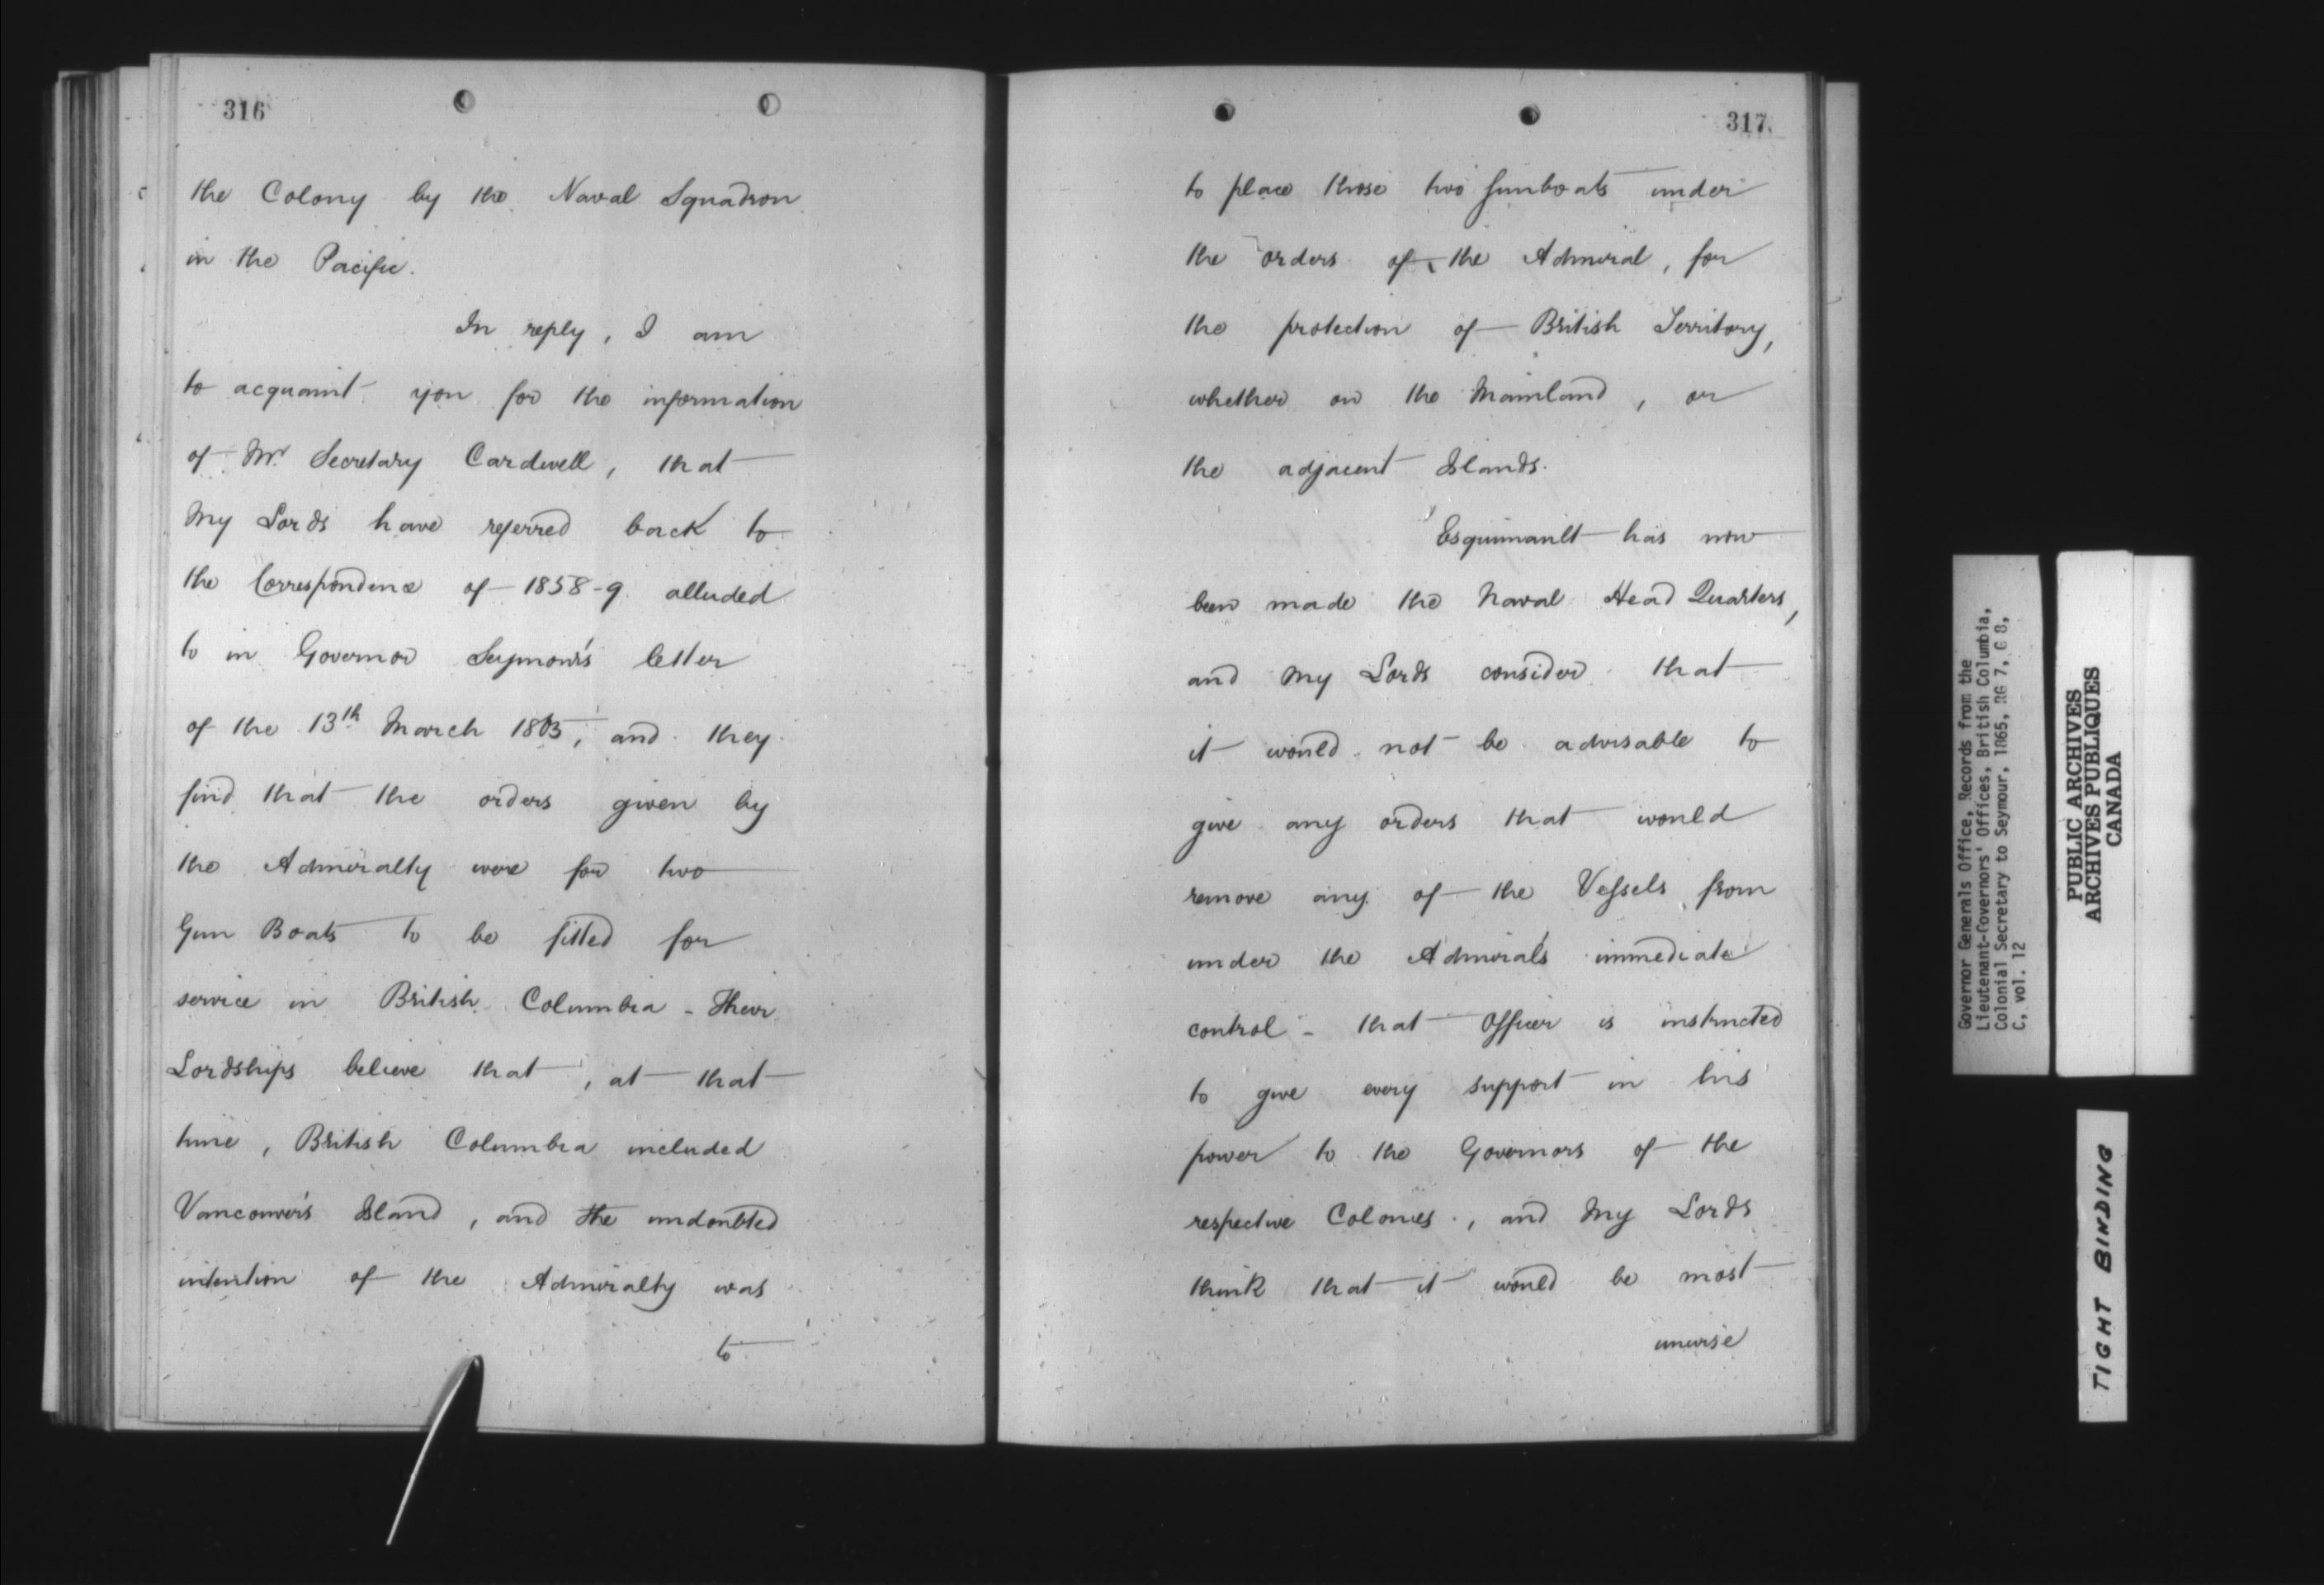 316
the Colony by the Naval Squadron
in the Pacific.
In reply, I am
to acquaint you for the information
of Mr Secretary Cardwell, that
My Lords have referred back to
the Correspondence of 1858-9 alluded
to in Governor Seymour's letter
of the 13th March 1865, and they
find that the orders given by
the Admiralty were for two
Gun Boats to be fitted for
service in British Columbia - Their
Lordships believe that, at that
time, British Columbia included
Vancouver's Island, and the undoubted
intention of the Admiralty was
to
317.
to place those two gunboats under
the orders of the Admiral, for
the protection of British Territory,
whether on the Mainland, or
the adjacent Islands.
Esquimault has now
been made the Naval Head Quarters,
and My Lords consider that
it would not be advisable to
give any orders that would
remove any of the Vessels from
under the Admiral's immediate
control - that Officer is instructed
to give every support in his
power to the Governors of the
respective Colonies, and My Lords
think that it would be most
unwise
Governor Generals Office, Records from the
Lieutenant-Governors' Offices, British Columbia,
Colonial Secretary to Seymour, 1865, RG 7, G 8,
C, vol. 12
PUBLIC ARCHIVES
ARCHIVES PUBLIQUES
CANADA
TIGHT BINDING